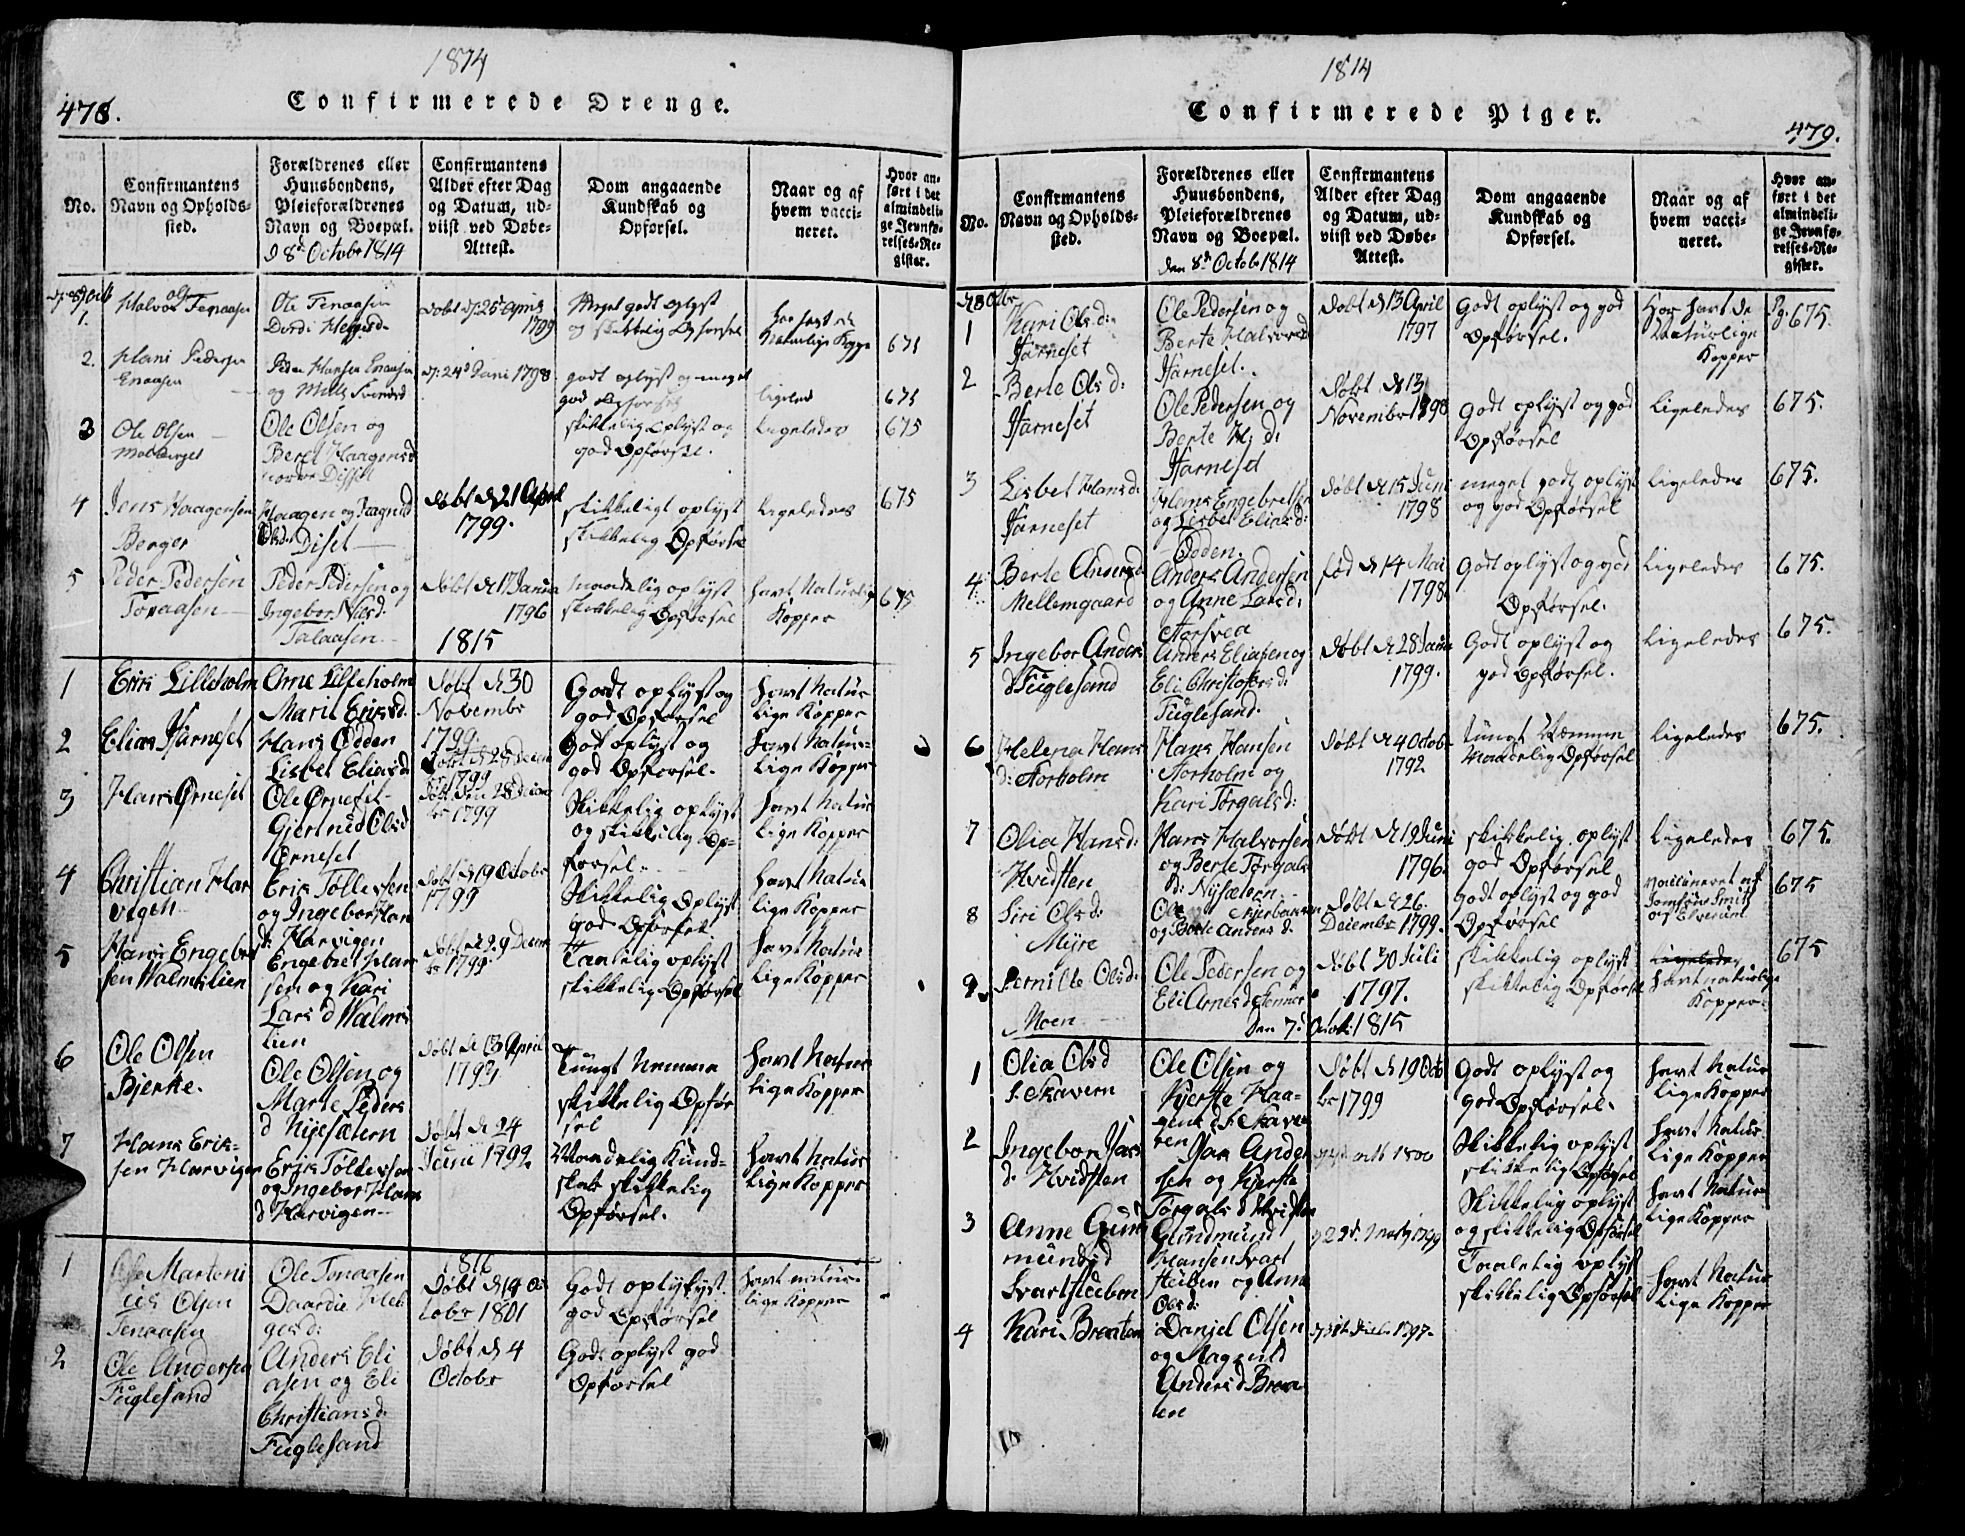 1814
478.
Confirmerede Drenge.
No.
Confirmantens
Navn og Opholds-
sted.
Forældrenes eller
Huusbondens,
Pleieforældrenes
Navn og Boepæl.
d 8de Octobr 1814
Confirmantens
Alder efter Dag
og Datum, ud-
viist ved Døbe-
Attest.
Dom angaaende
Kundskab og
Opførsel.
Naar og af
hvem vacci-
neret.
Hvor an-
ført i det
almindeli-
ge Jevnfø-
relses-Re-
gister.
1.
Halvor
Ole
Døbt d: 25de April
1799
Meget godt oplyst
og skikkelig Opførsel
Naturlige
671
2.
Hans Pedersen
Peder Hansen
d: 24de Juni 1798
godt oplyst og meget
god Opførsel
ligeled
675
3
Ole Olsen
Ole Olsen og
Beret Haagensd
Disset
skikkelig Oplyst og
god Opførsel.
Ligeledes
675
4
Jens Haagensen
Berger
Haagen og
Diset
Døbt d 21 April
1799.
skikkeligt oplyst
skikkelig Opførsel
Ligeledes
675
5
Peder Pedersen
Peder Pedersen og
Ingebor Nilsd
Døbt d 17 Janua
1796
maadelig oplyst
skikkelig Opførsel
havt Naturlig
Kopper
675
1815
1
Erik Lilleholm
Arne Lilleholm
Marit Eriksd.
Døbt d 30
Novembr
1799.
Godt oplyst og
god Opførsel
havt Natur
lige Kopper
2
Elias Harneset
Hans Odden
Lisbet Eliasd
1799
God oplyst og
god Opførsel.
havt Natur-
lige Kopper
3
Hans Ørneset
Ole Ørneset
Gjertrud Olsd
Ørneset
Døbt den 28 Decem
br 1799
Skikkelig oplyst
og skikkelig Op-
førsel.
havt Natur
lige Kopper
4
Christian Har
vigen
Erik Tollefsen
og Ingebor Han
d: Harvigen
Døbt d 19 Octobr
1799
Skikkelig Oplyst
god Opførsel
havt Natur
lige Kopper
5
Hans Engebret
sen Walmslien
Engebret Han
sen og Kari
Lars d Walms
lien
Døbt d 29 Decem
br 1799.
Taalelig oplyst
skikkelig Opførsel
havt Natur
lige Kopper
6
Ole Olsen
Bjerke.
Ole Olsen og
Marte Peders
d Nysætern
Døbt d 13 April
1799
Tungt Nemme
skikkelig Opfør
sel
havt Natur
lige Kopper
7
Hans Erik-
sen Harvigen
Erik Tollefsen
og Ingebor Hans
d Harvigen
Døbt d 24
Juni 1799.
Maadelig Kund-
skab skikkelig
Opførsel.
havt Natur
lige Kopper
1816
1
Martini
us Olsen
Tenaasen
Ole Tenaasen
Døbt d 14 Oc
tobr 1801
Godt oplyst
god Opførsel
havt natur-
lige Kopper
2
Ole Andersen
Fuglesand
Anders Eli
asen og Eli
Christiansd.
Fuglesand
Døbt d 4
Octobr
Godt oplyst god
Opførsel
1814
Confirmerede Piger.
479.
No.
Confirmantens
Navn og Opholds-
sted.
Forældrenes eller
Huusbondens,
Pleieforældrenes
Navn og Boepæl.
den 8de Octob 1814
Confirmantens
Alder efter Dag
og Datum, ud-
viist ved Døbe-
Attest.
Dom angaaende
Kundskab og
Opførsel.
Naar og af
hvem vacci-
neret.
Hvor an-
ført i det
almindeli-
ge Jevnfø-
relses-Re-
gister.
1
Kari Olsd:
Harneset
Ole Pedersen og
Berte Halvorsd
Harneset.
Døbt d 13 April
1797
Godt oplyst og god
Opførsel.
Har havt de
Naturlige
Kopper
Pg: 675.
2
Berte Olsd:
Harneset
Ole Pedersen og
Berte H: d:
Harneset
Døbt d 13
Novembr 1798
Godt oplyst og god
Opførsel
Ligeledes
675.
3
Lisbet Hansd:
Harneset
Hans Engebretsen
og Lisbet Eliasd:
Odden.
Døbt d 15 Juni
1798
meget godt oplyst
og god Opførsel
Ligeledes
675.
4.
Berte Andersd
Mellemgaard
Anders Andersen
og Anne Larsd:
fød d 14 Mai
1798.
Godt oplyst og god
Opførsel.
Ligeledes
675.
5
Ingebor Anders
d Fuglesand
Anders Eliasen og
Eli Christofersd:
Fuglesand.
Døbt d 28 Janua
1799.
Godt oplyst og
god Opførsel.
Ligeledes
675.
6
Helena Hans
d: Storholm
Hans Hansen
Storholm og
Kari Torgalsd:
Døbt d 4 Octobr
1792
tungt Nemme
Maadelig Opførsel
Ligeledes
675.
7
Olia Hansd:
Hvidsten
Hans Halvorsen
og Berte Torgals
d: Nysætern
Døbt d 19 Juni
1796.
skikkelig oplyst
god Opførsel
Ligeledes
675.
8
Siri Olsd:
Myre
Ole
og Berte Anders d.
Døbt d 26.
Decembr 1799.
godt oplyst og god
Opførsel
Vaccineret af
Jomfrue Smith
og Elverum
675
9
Pernille Olsd:
Moen
Ole Pedersen og
Eli Arnesd
Døbt 30 Juli
1797.
skikkelig oplyst
skikkelig Opførsel
havt naturlige
Kopper
675
Den 7de Octob: 1815
1
Olia Olsd
S. Skavern
Ole Olsen og
Kjerste Haa-
gens d S. Skaver
Døbt d 19 Octo
br 1799
Godt oplyst og
god Opførsel.
havt Natur
lige Kopper
2
Ingebor
d. Hvidsten
Ander
sen og Kjerste
Torgals d Hvidsten
1800
Skikkelig oplyst
skikkelig Opførsel
havt Natur
lige Kopper
3
Anne Gun
mundsd
Svartstuben
Gundmund
Hansen Svart
stuben og Anne
Olsd:
1799
Skikkelig oplyst
og skikkelig Opførsel
havt Natur
lige Kopper
4
Kari Braaten
Daniel Olsen
og Magnild
Anders d Braa
ten
1797.
Taalelig oplyst
skikkelig Opførsel
havt Natur
lige Kopper